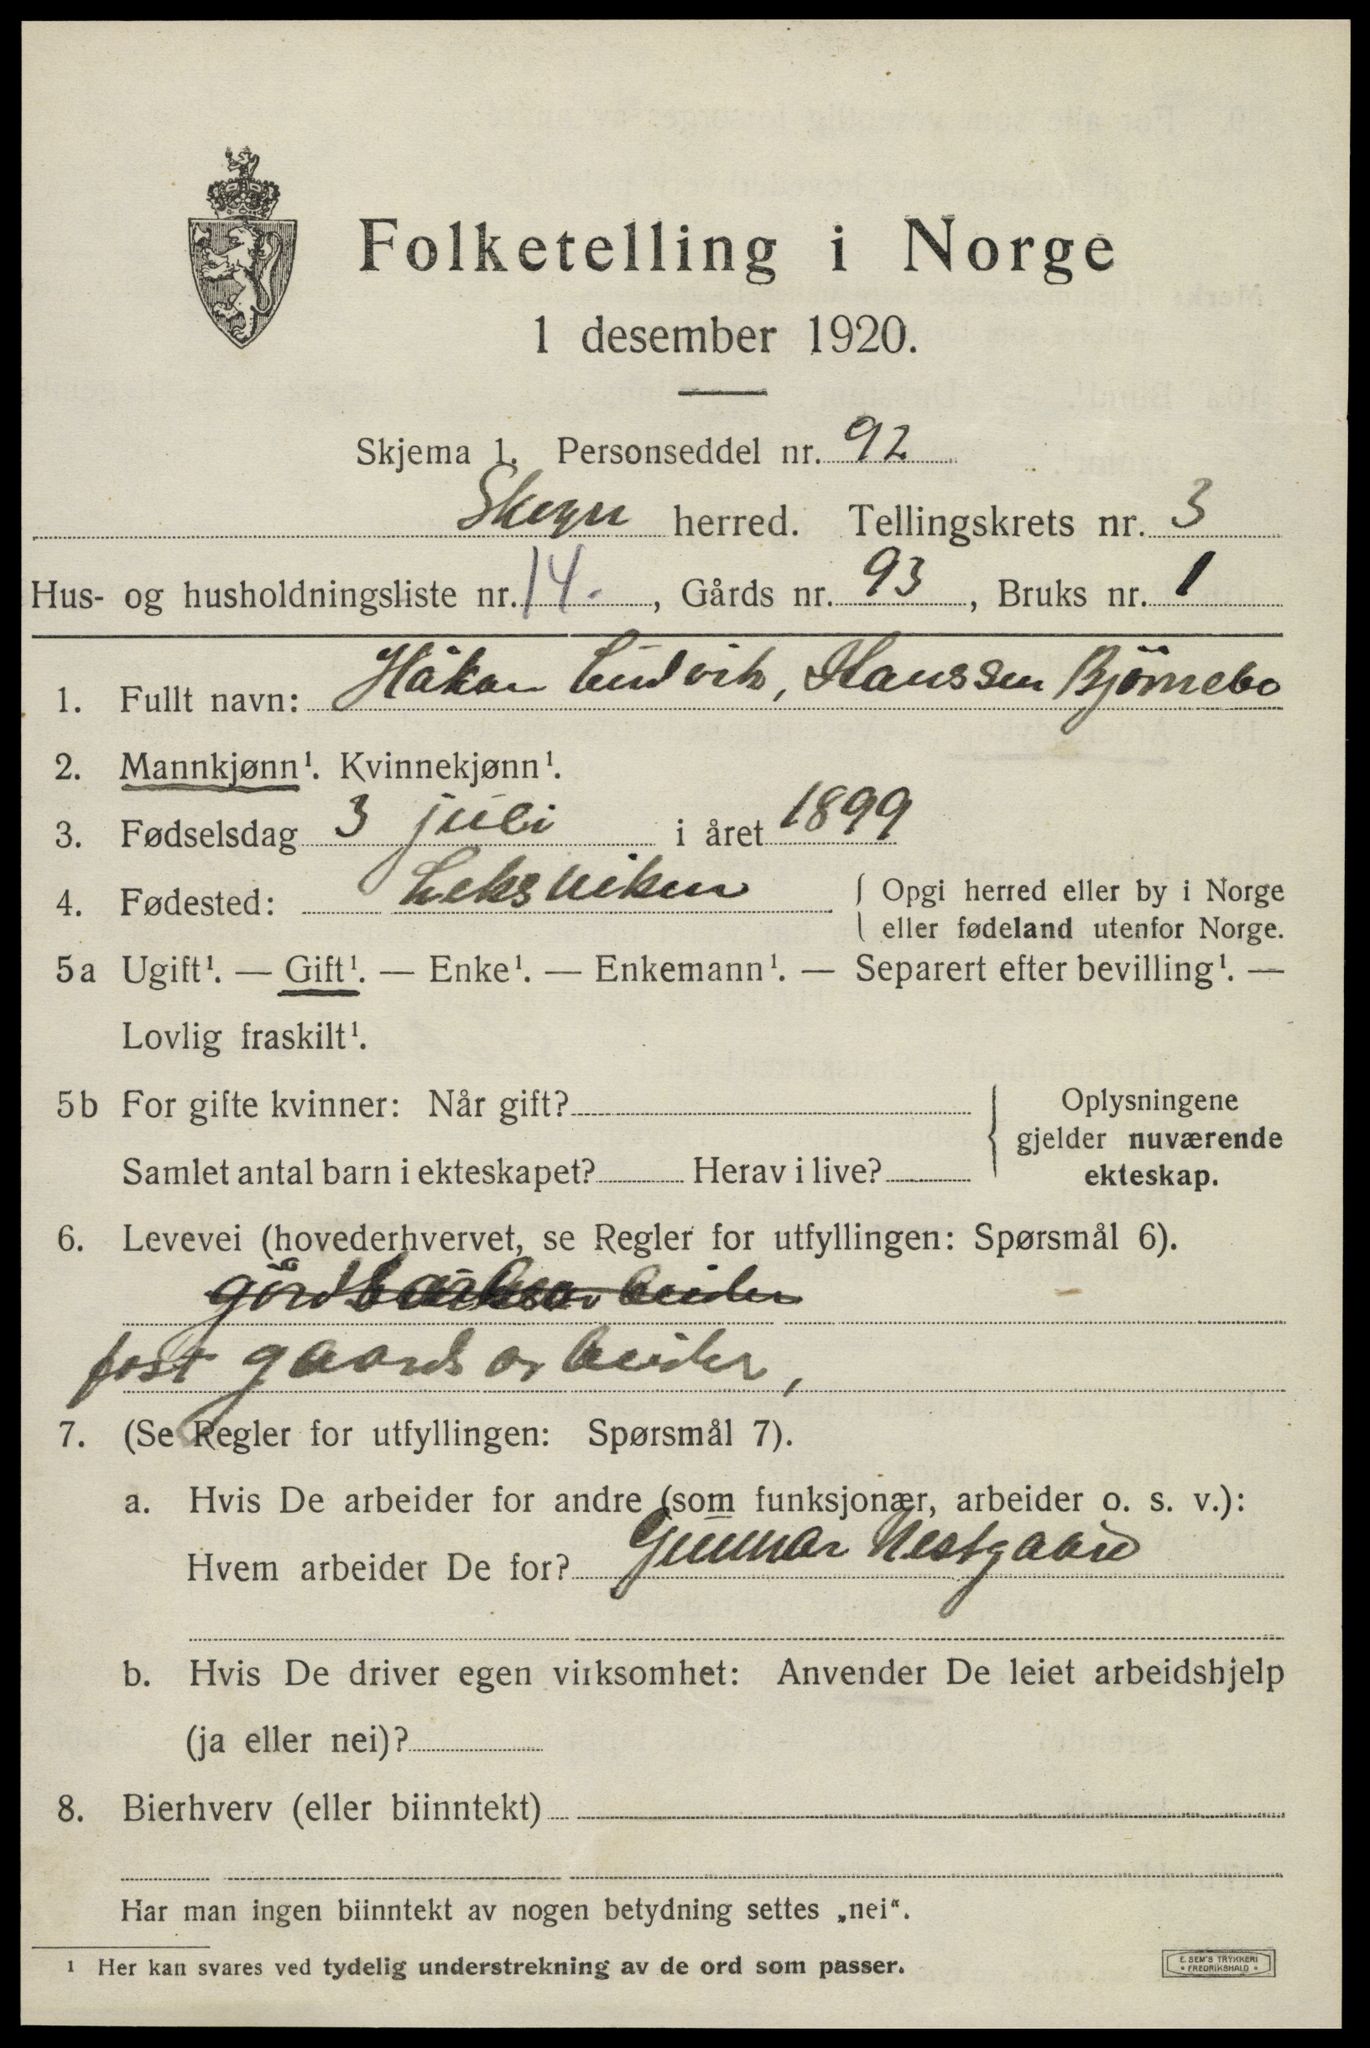 Folketelling i Norge
1 desember 1920.
Skjema 1. Personseddel nr. 92
Skogn herred. Tellingskrets nr. 3
Hus- og husholdningsliste nr. 14. , Gårds nr. 93 , Bruks nr. 1
1. Fullt navn: Håkon Ludvik, Hanssen Bjørnebo
2. Mannkjønn¹. Kvinnekjønn¹.
3. Fødselsdag 3 juli i året 1899
4. Fødested: Leksviken { Opgi herred eller by i Norge
eller fødeland utenfor Norge.
5a Ugift¹. — Gift¹. — Enke¹. — Enkemann¹. — Separert efter bevilling¹. —
Lovlig fraskilt¹.
5b For gifte kvinner: Når gift? Oplysningene
gjelder nuværende
Samlet antal barn i ekteskapet? Herav i live? ekteskap.
6. Levevei (hovederhvervet, se Regler for utfyllingen: Spørsmål 6).
fast gaardsarbeider,
7. (Se Regler for utfyllingen: Spørsmål 7).
a. Hvis De arbeider for andre (som funksjonær, arbeider o. s. v.):
Hvem arbeider De for? Gunnar Nestgaard
b. Hvis De driver egen virksomhet: Anvender De leiet arbeidshjelp
(ja eller nei)?
8. Bierhverv (eller biinntekt)
Har man ingen biinntekt av nogen betydning settes „nei“.
¹ Her kan svares ved tydelig understrekning av de ord som passer.
E. SEM'S TRYKKERI
• FREDRIKSHALD •